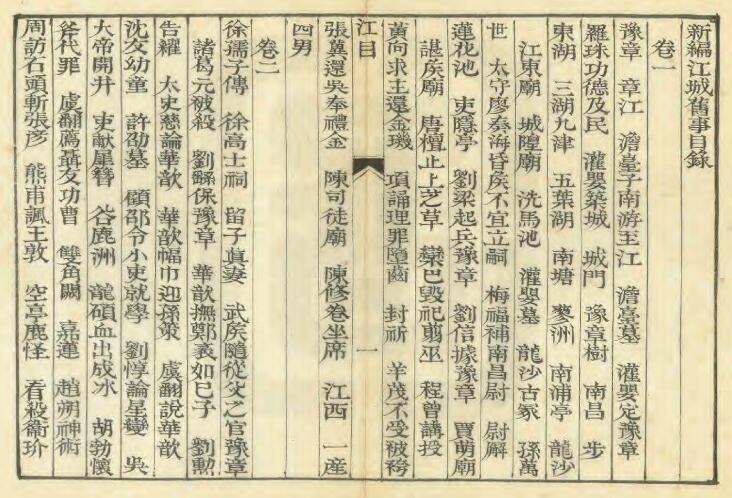 新編江城舊事目錄
卷一
豫章 章江 澹臺子南游至江 澹臺墓 灌嬰定豫章
羅珠功德及民 灌嬰築城 城門 豫章樹 南昌 步
東湖 三湖九津 五葉湖 南塘 蓼洲 南浦亭 龍沙
江東廟 城隍廟 洗馬池 灌嬰墓 龍沙古冢 孫萬
世 太守廖奏海昏矦不宜立嗣 梅福補南昌尉 尉廨
蓮花池 吏隱亭 劉梁起兵豫章 劉信據豫章 賈萌廟
諶矦廟 唐檀止上芝草 欒巴毀祀翦巫 程曾講授
黃向求主還金璣 項誦理罪墮齒 封祈 羊茂不受被袴
江目
一
張冀還吳奉禮金 陳司徒廟 陳修卷坐席 江西一產
四男
卷二
徐孺子傳 徐高士祠 留子眞妻 武矦隨從父之官豫章
諸葛元被殺 劉繇保豫章 華歆撫鄭袤如己子 劉勳
告糴 太史慈論華歆 華歆幅巾迎孫策 虞翻說華歆
沈友幼童 許劭墓 顧邵令小吏就學 劉惇論星變 吳
大帝開井 吏獻犀簪 谷鹿洲 龍碩血出成冰 胡勃懷
斧代罪 虞翻薦聶友功曹 雙角闕 嘉蓮 趙朔神術
周訪石頭斬張彥 熊甫諷王敦 空亭鹿怪 看殺衞玠